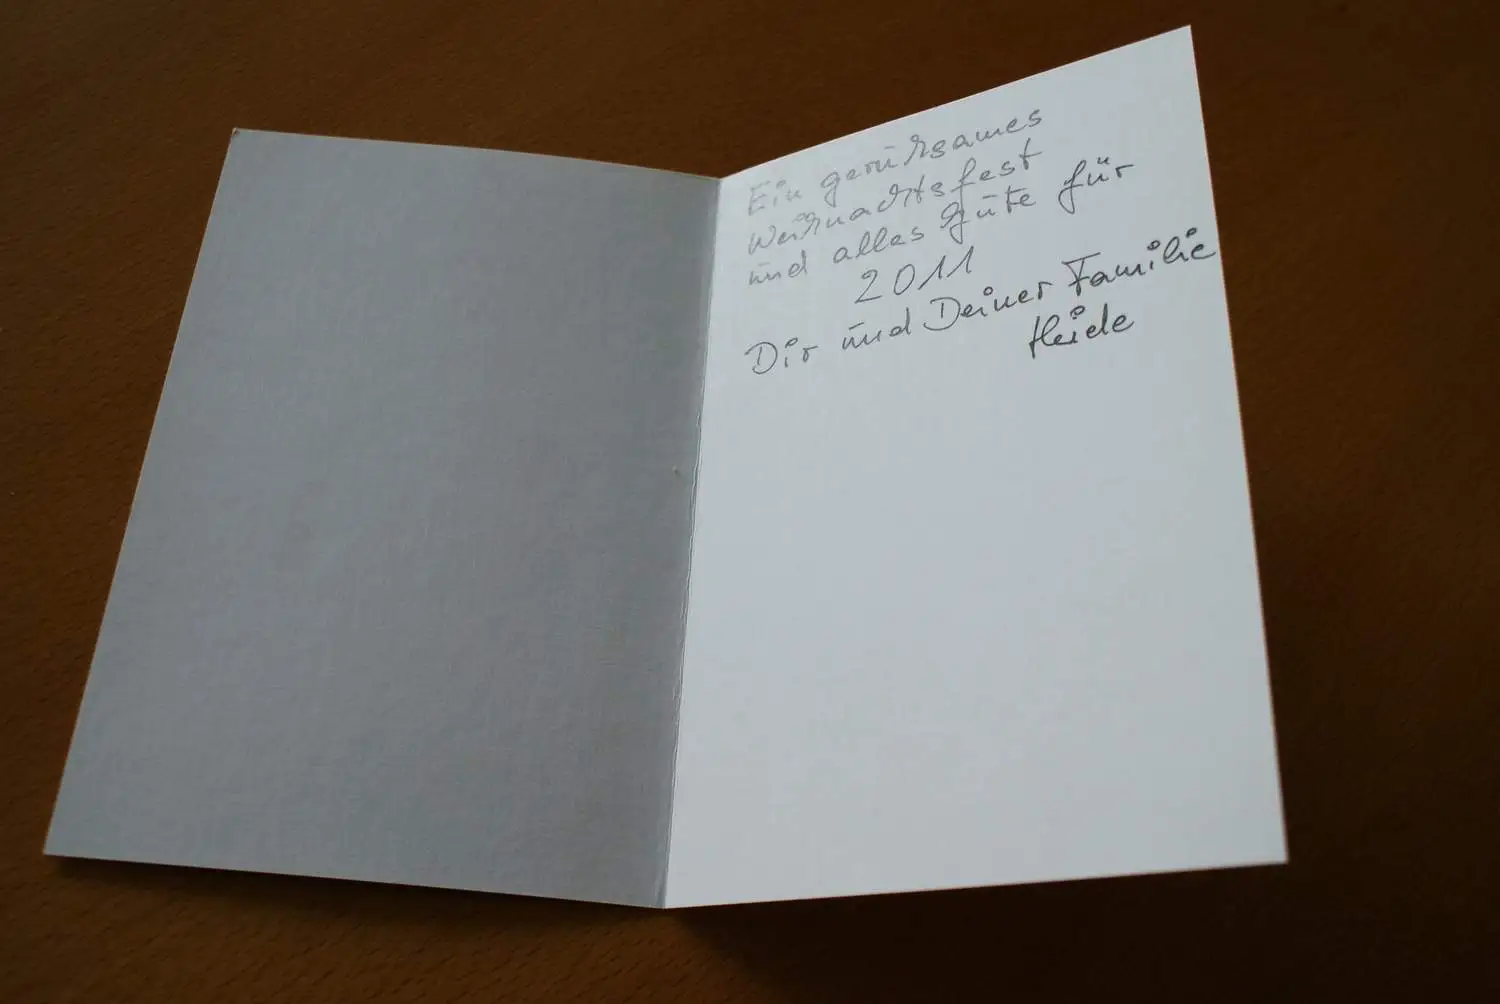 Ein geruhsames
Weihnachtsfest
und alles gute für
2011
Dir und Deiner Familie
Heide